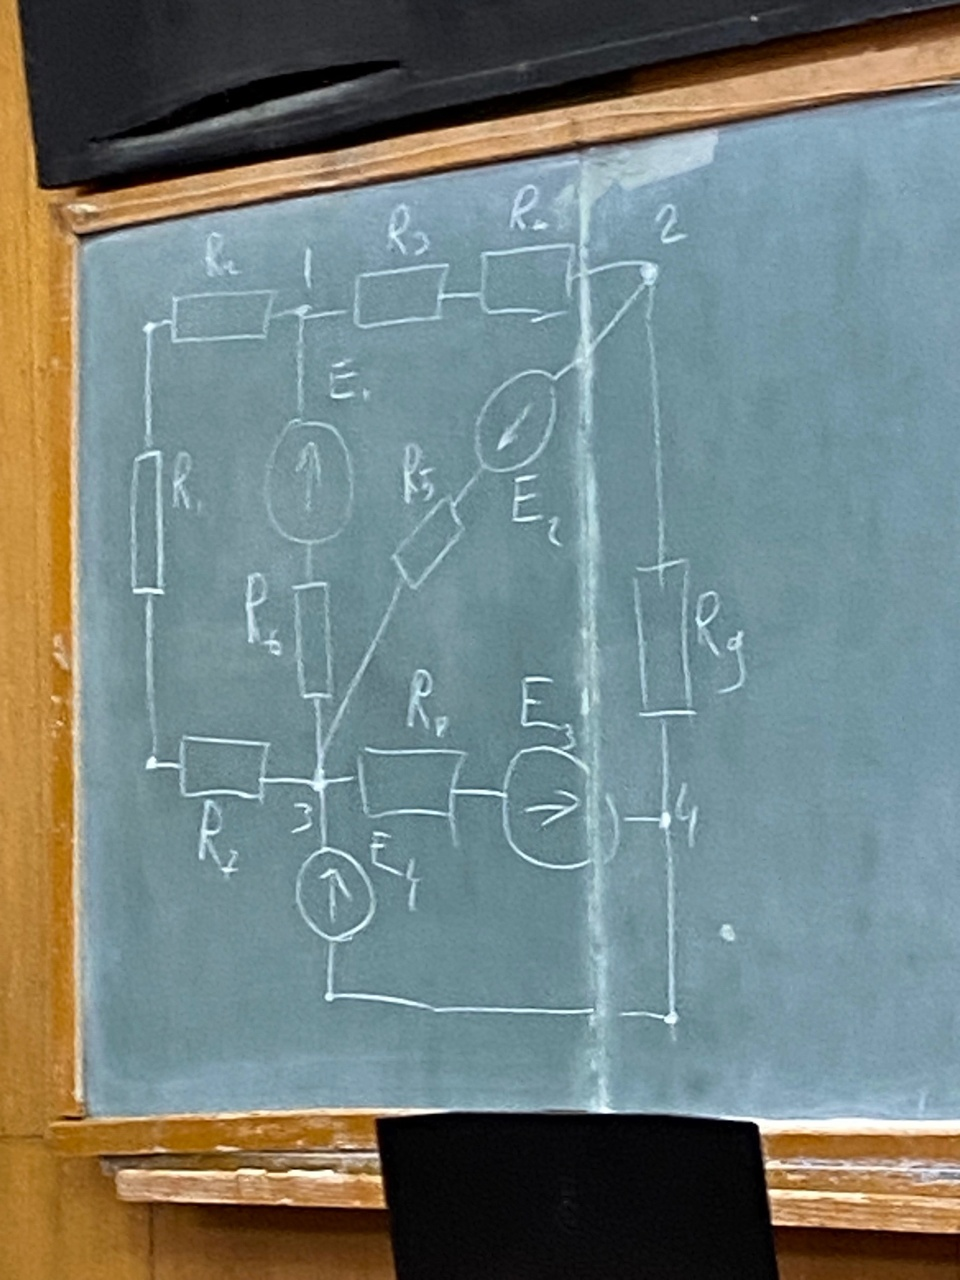 R₂ 1 R₃ R₄ 2
E₁
R₁ R₅ E₂
R₆ R₉
R₈ E₃
R₇ 3 E₄ 4